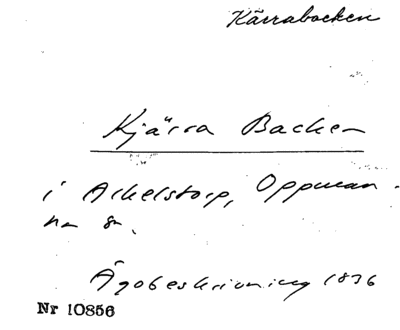 Kärrabacken
Kjärra Backen
i Arkelstorp, Oppman-
na sn.
Ägobeskrivning 1836
Nr 10856